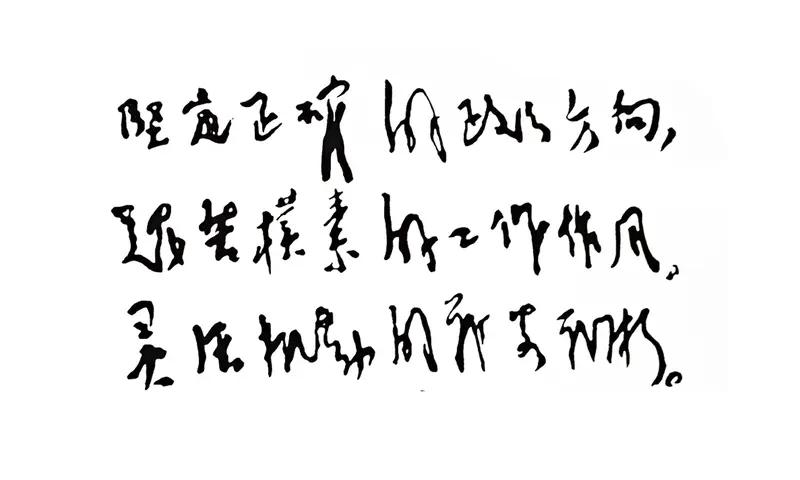 坚定正确的政治方向，
艰苦樸素的工作作风，
灵活机动的战略战术。